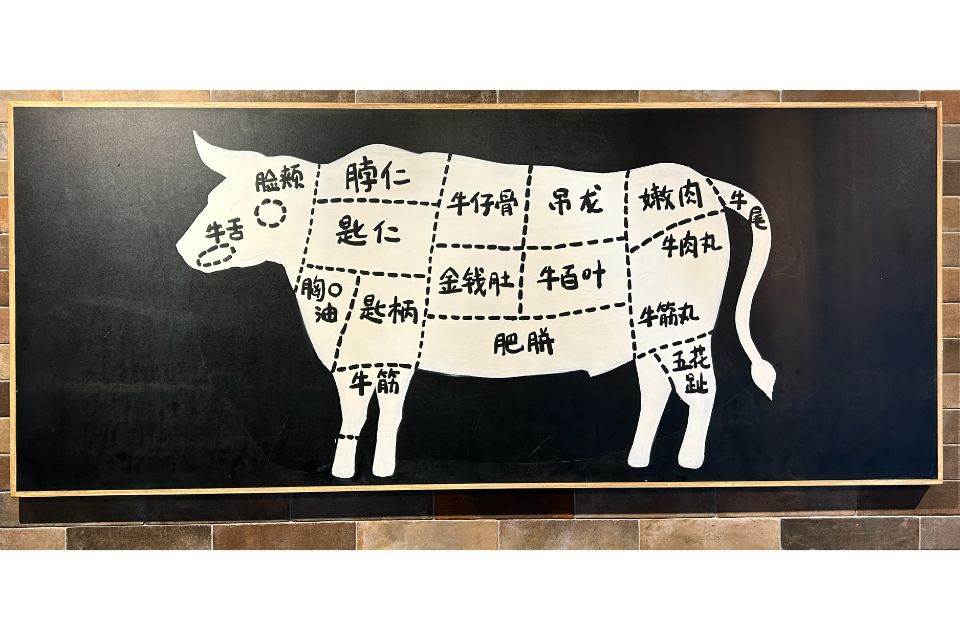 脸颊
牛舌
脖仁
匙仁
胸口
油
匙柄
牛筋
牛仔骨
吊龙
金钱肚
牛百叶
肥胼
嫩肉
牛肉丸
牛筋丸
五花
趾
牛
尾